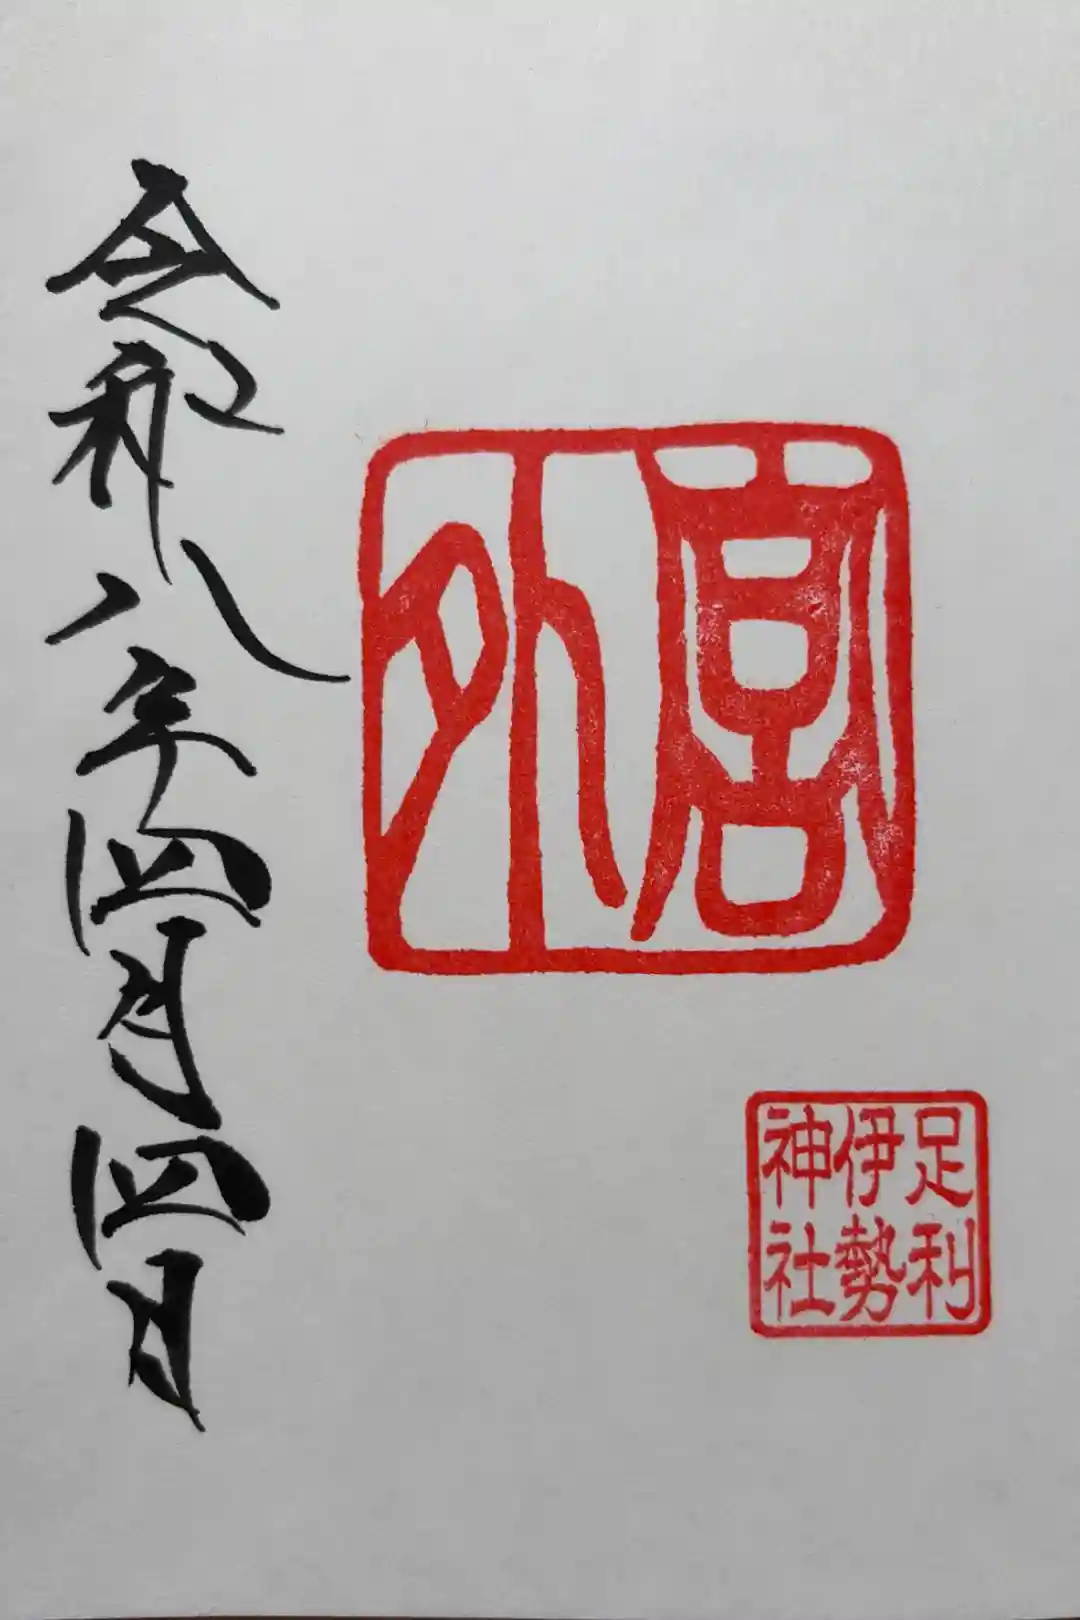 外宮
足利
伊勢
神社
令和八年四月四日